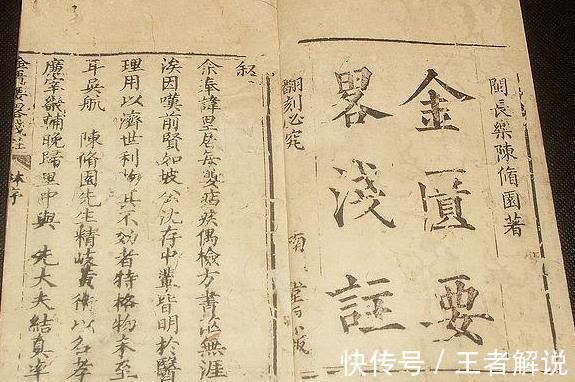 閩長樂陳脩園著
金匱要
畧淺註
翻刻必究
叙
余奉諱里居每嬰痁疾偶檢方書茫無涯
涘因嘆前賢如坡公沈存中輩皆明於醫
理用以濟世利物其不効者特格物未至
耳吳航 陳脩園先生精岐黃術以名孝
廉宰畿輔晚歸里中與 先大夫結真率
金匱要畧淺註 林序
快传号 / 王者解说